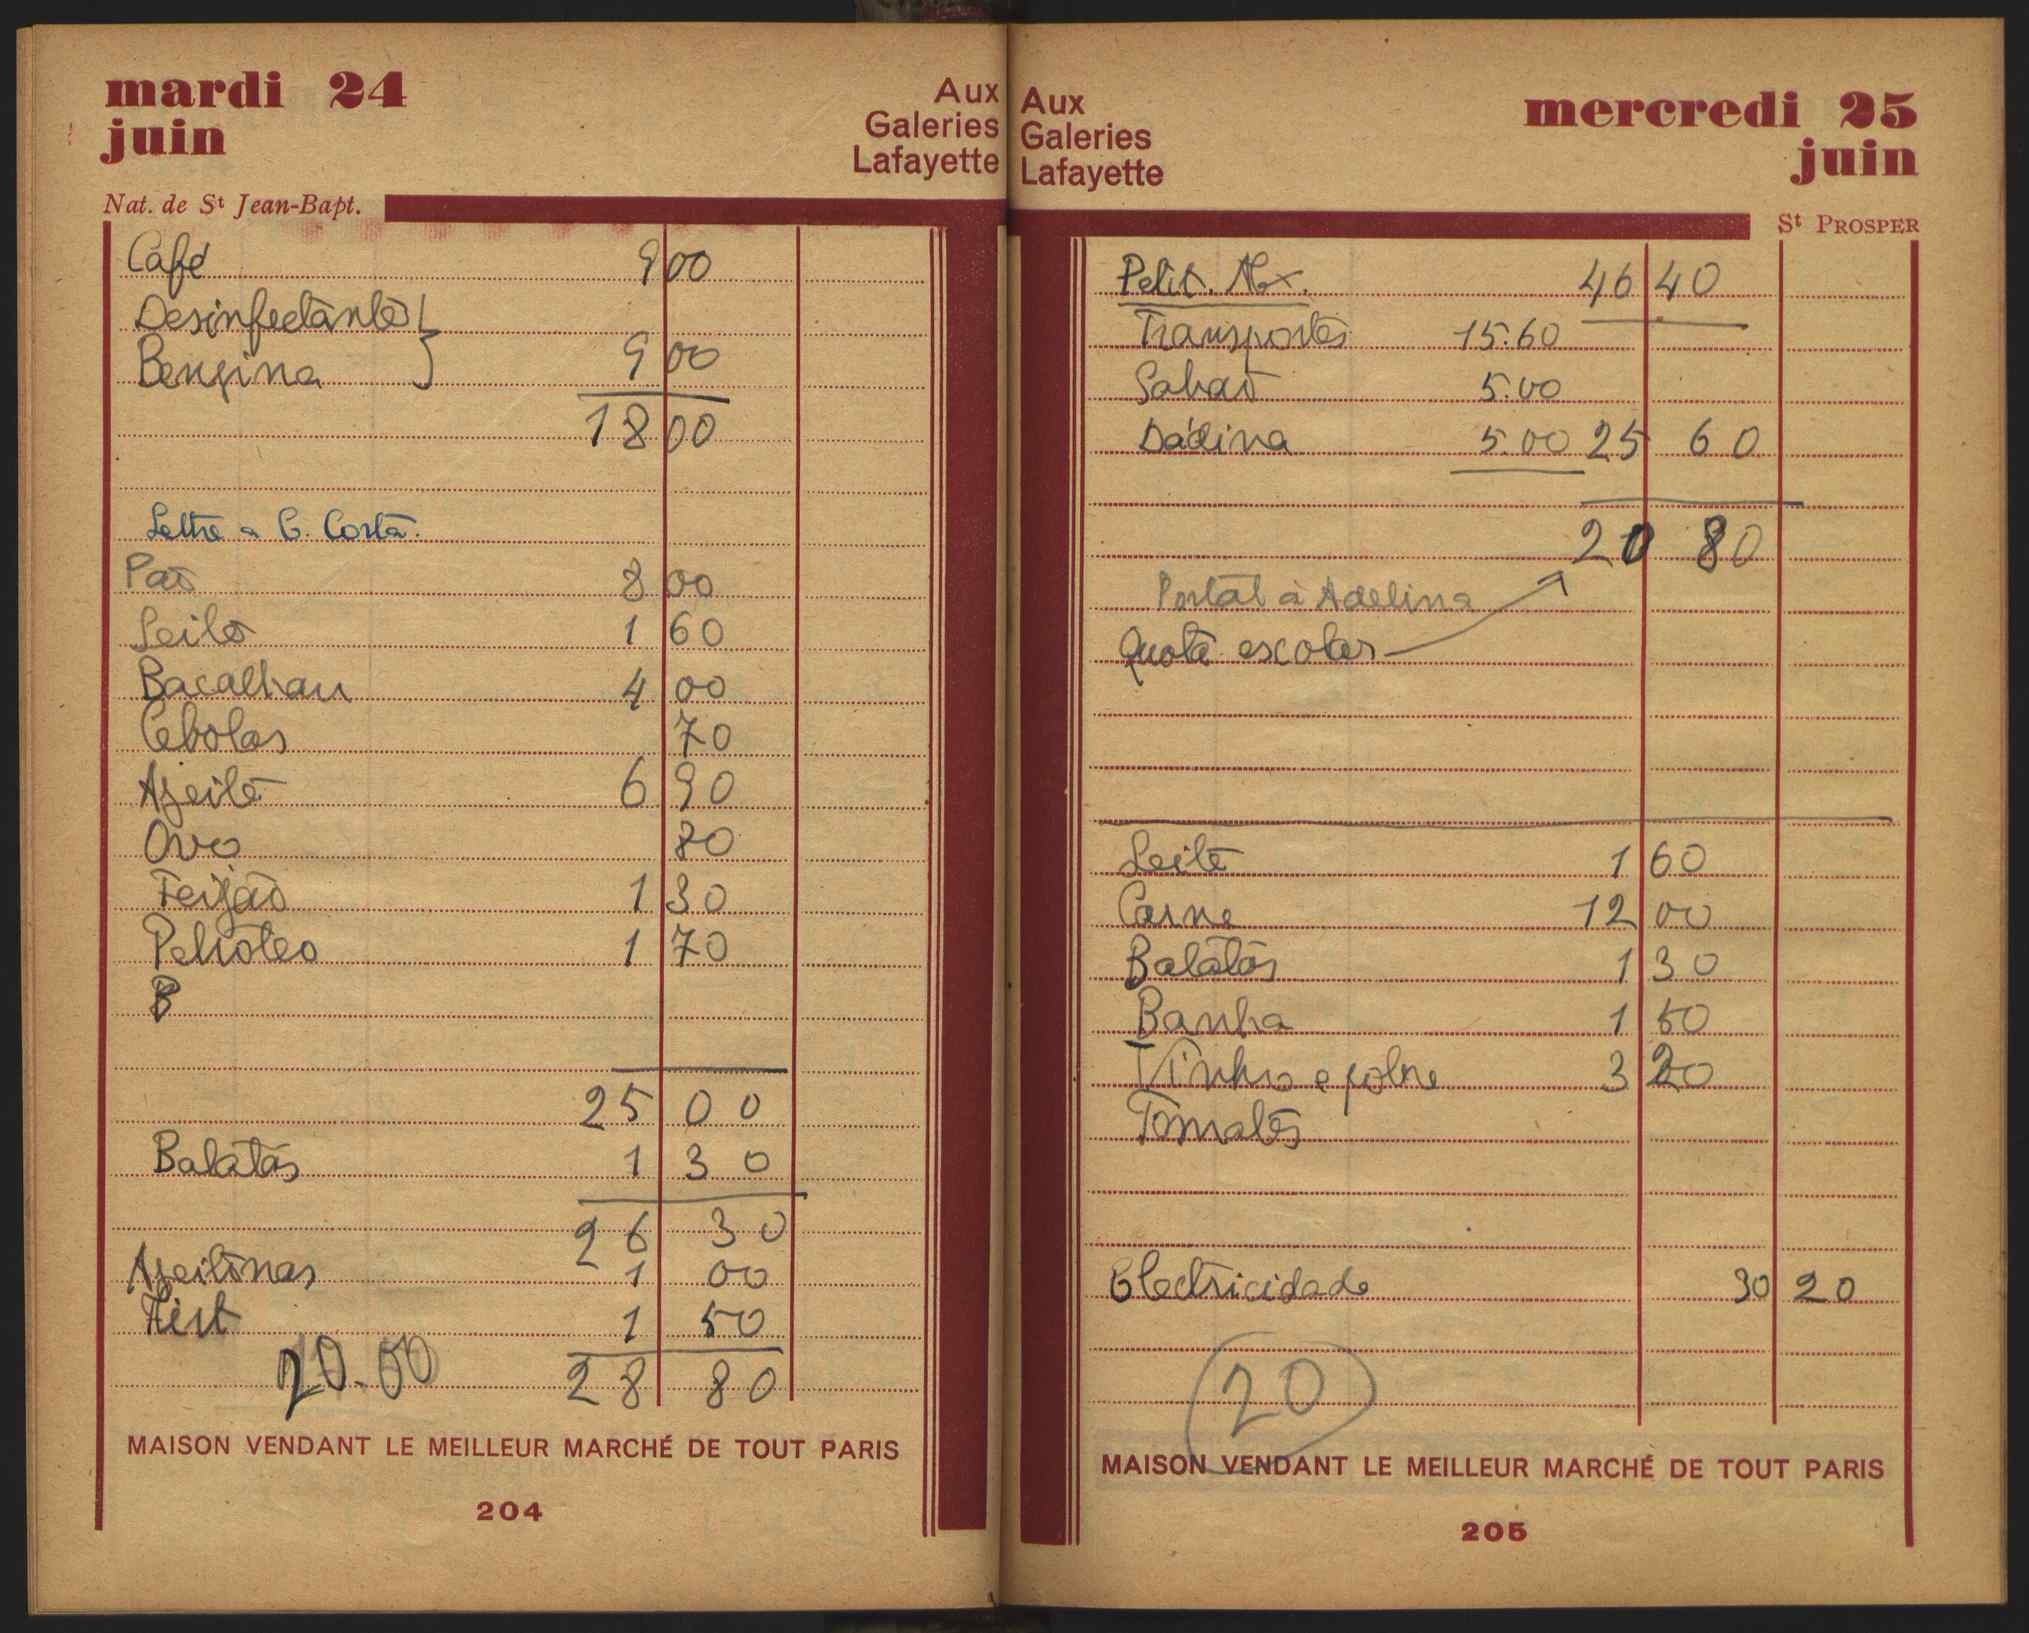 mardi 24
juin
Nat. de St Jean-Bapt.
Aux
Galeries
Lafayette
Café 9 00
Desinfectante
Benzina 9 00
18 00
Lettre a G. Costa.
Pão 8 00
Leite 1 60
Bacalhau 4 00
Cebolas 70
Azeite 6 90
Ovo 80
Feijão 1 30
Petroleo 1 70
B
25 00
Batatas 1 30
26 30
Azeitonas 1 00
1 50
20.00 28 80
MAISON VENDANT LE MEILLEUR MARCHÉ DE TOUT PARIS
204
Aux
Galeries
Lafayette
mercredi 25
juin
St PROSPER
Petit. 46 40
Transportes 15.60
Sabão 5.00
Dádiva 5.00 25 60
20 80
Postal à Adelina
Quota escolar
Leite 1 60
Carne 12 00
Batatas 1 30
Banha 1 50
Vinho e 3 20
Tomates
Electricidade 30 20
20
MAISON VENDANT LE MEILLEUR MARCHÉ DE TOUT PARIS
205